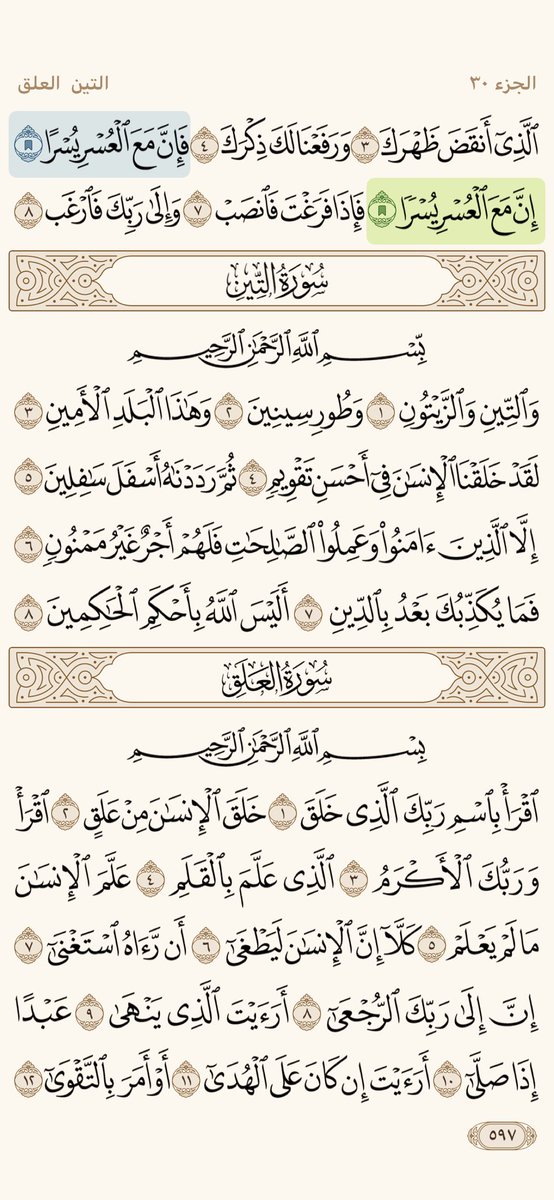 الجزء ٣٠
التين العلق
ٱلَّذِىٓ أَنقَضَ ظَهۡرَكَ ٣ وَرَفَعۡنَا لَكَ ذِكۡرَكَ ٤ فَإِنَّ مَعَ ٱلۡعُسۡرِ يُسۡرًا
إِنَّ مَعَ ٱلۡعُسۡرِ يُسۡرٗا فَإِذَا فَرَغۡتَ فَٱنصَبۡ ٧ وَإِلَىٰ رَبِّكَ فَٱرۡغَب ٨
سُورَةُ التِّينِ
بِّسۡمِ ٱللَّهِ ٱلرَّحۡمَٰنِ ٱلرَّحِيمِ
وَٱلتِّينِ وَٱلزَّيۡتُونِ ١ وَطُورِ سِينِينَ ٢ وَهَٰذَا ٱلۡبَلَدِ ٱلۡأَمِينِ ٣
لَقَدۡ خَلَقۡنَا ٱلۡإِنسَٰنَ فِىٓ أَحۡسَنِ تَقۡوِيمٖ ٤ ثُمَّ رَدَدۡنَٰهُ أَسۡفَلَ سَٰفِلِينَ ٥
إِلَّا ٱلَّذِينَ ءَامَنُواْ وَعَمِلُواْ ٱلصَّٰلِحَٰتِ فَلَهُمۡ أَجۡرٌ غَيۡرُ مَمۡنُونٖ ٦
فَمَا يُكَذِّبُكَ بَعۡدُ بِٱلدِّينِ ٧ أَلَيۡسَ ٱللَّهُ بِأَحۡكَمِ ٱلۡحَٰكِمِينَ ٨
سُورَةُ العَلَقِ
بِسۡمِ ٱللَّهِ ٱلرَّحۡمَٰنِ ٱلرَّحِيمِ
ٱقۡرَأۡ بِٱسۡمِ رَبِّكَ ٱلَّذِى خَلَقَ ١ خَلَقَ ٱلۡإِنسَٰنَ مِنۡ عَلَقٍ ٢ ٱقۡرَأۡ
وَرَبُّكَ ٱلۡأَكۡرَمُ ٣ ٱلَّذِى عَلَّمَ بِٱلۡقَلَمِ ٤ عَلَّمَ ٱلۡإِنسَٰنَ
مَا لَمۡ يَعۡلَمۡ ٥ كَلَّآ إِنَّ ٱلۡإِنسَٰنَ لَيَطۡغَىٰٓ ٦ أَن رَّءَاهُ ٱسۡتَغۡنَىٰٓ ٧
إِنَّ إِلَىٰ رَبِّكَ ٱلرُّجۡعَىٰٓ ٨ أَرَءَيۡتَ ٱلَّذِى يَنۡهَىٰ ٩ عَبۡدًا
إِذَا صَلَّىٰٓ ١٠ أَرَءَيۡتَ إِن كَانَ عَلَى ٱلۡهُدَىٰٓ ١١ أَوۡ أَمَرَ بِٱلتَّقۡوَىٰٓ ١٢
٥٩٧